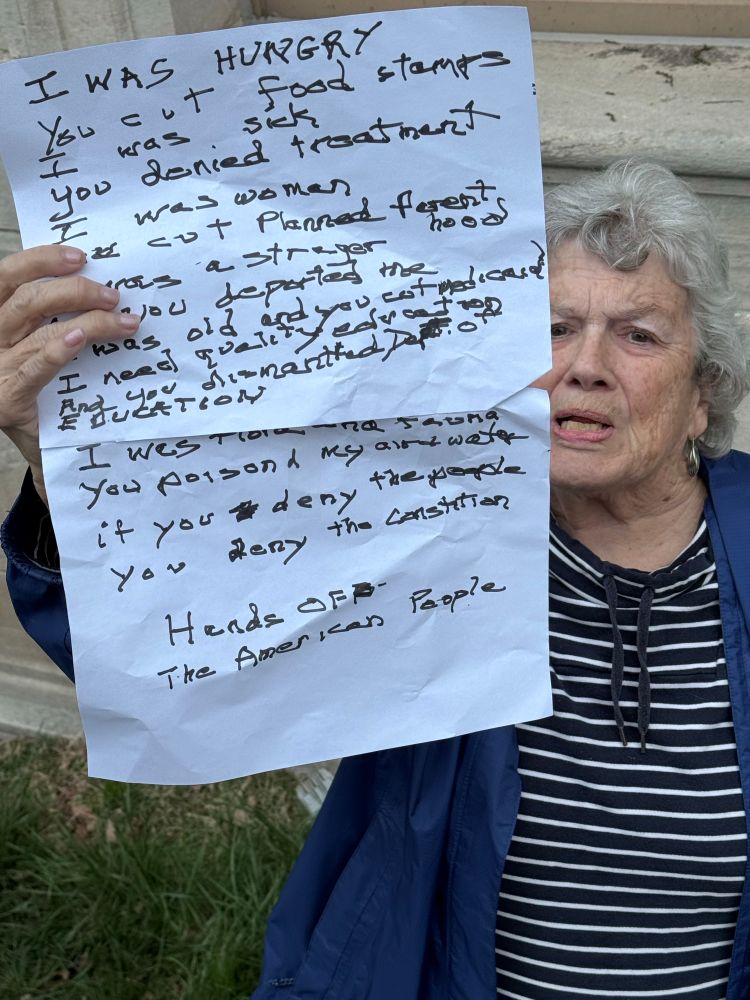 I WAS HUNGRY
You cut food stamps
I was sick
you denied treatment
I was woman
cut Planned Parent
hood
was a stranger
you deported me
was old and you cut medicaid
I need quality education
And you dismantled Dept. of
EDUCATION
I was Flora and Fauna
You poisond my air & water
if you deny the people
you deny the constition
Hands OFF
The American People